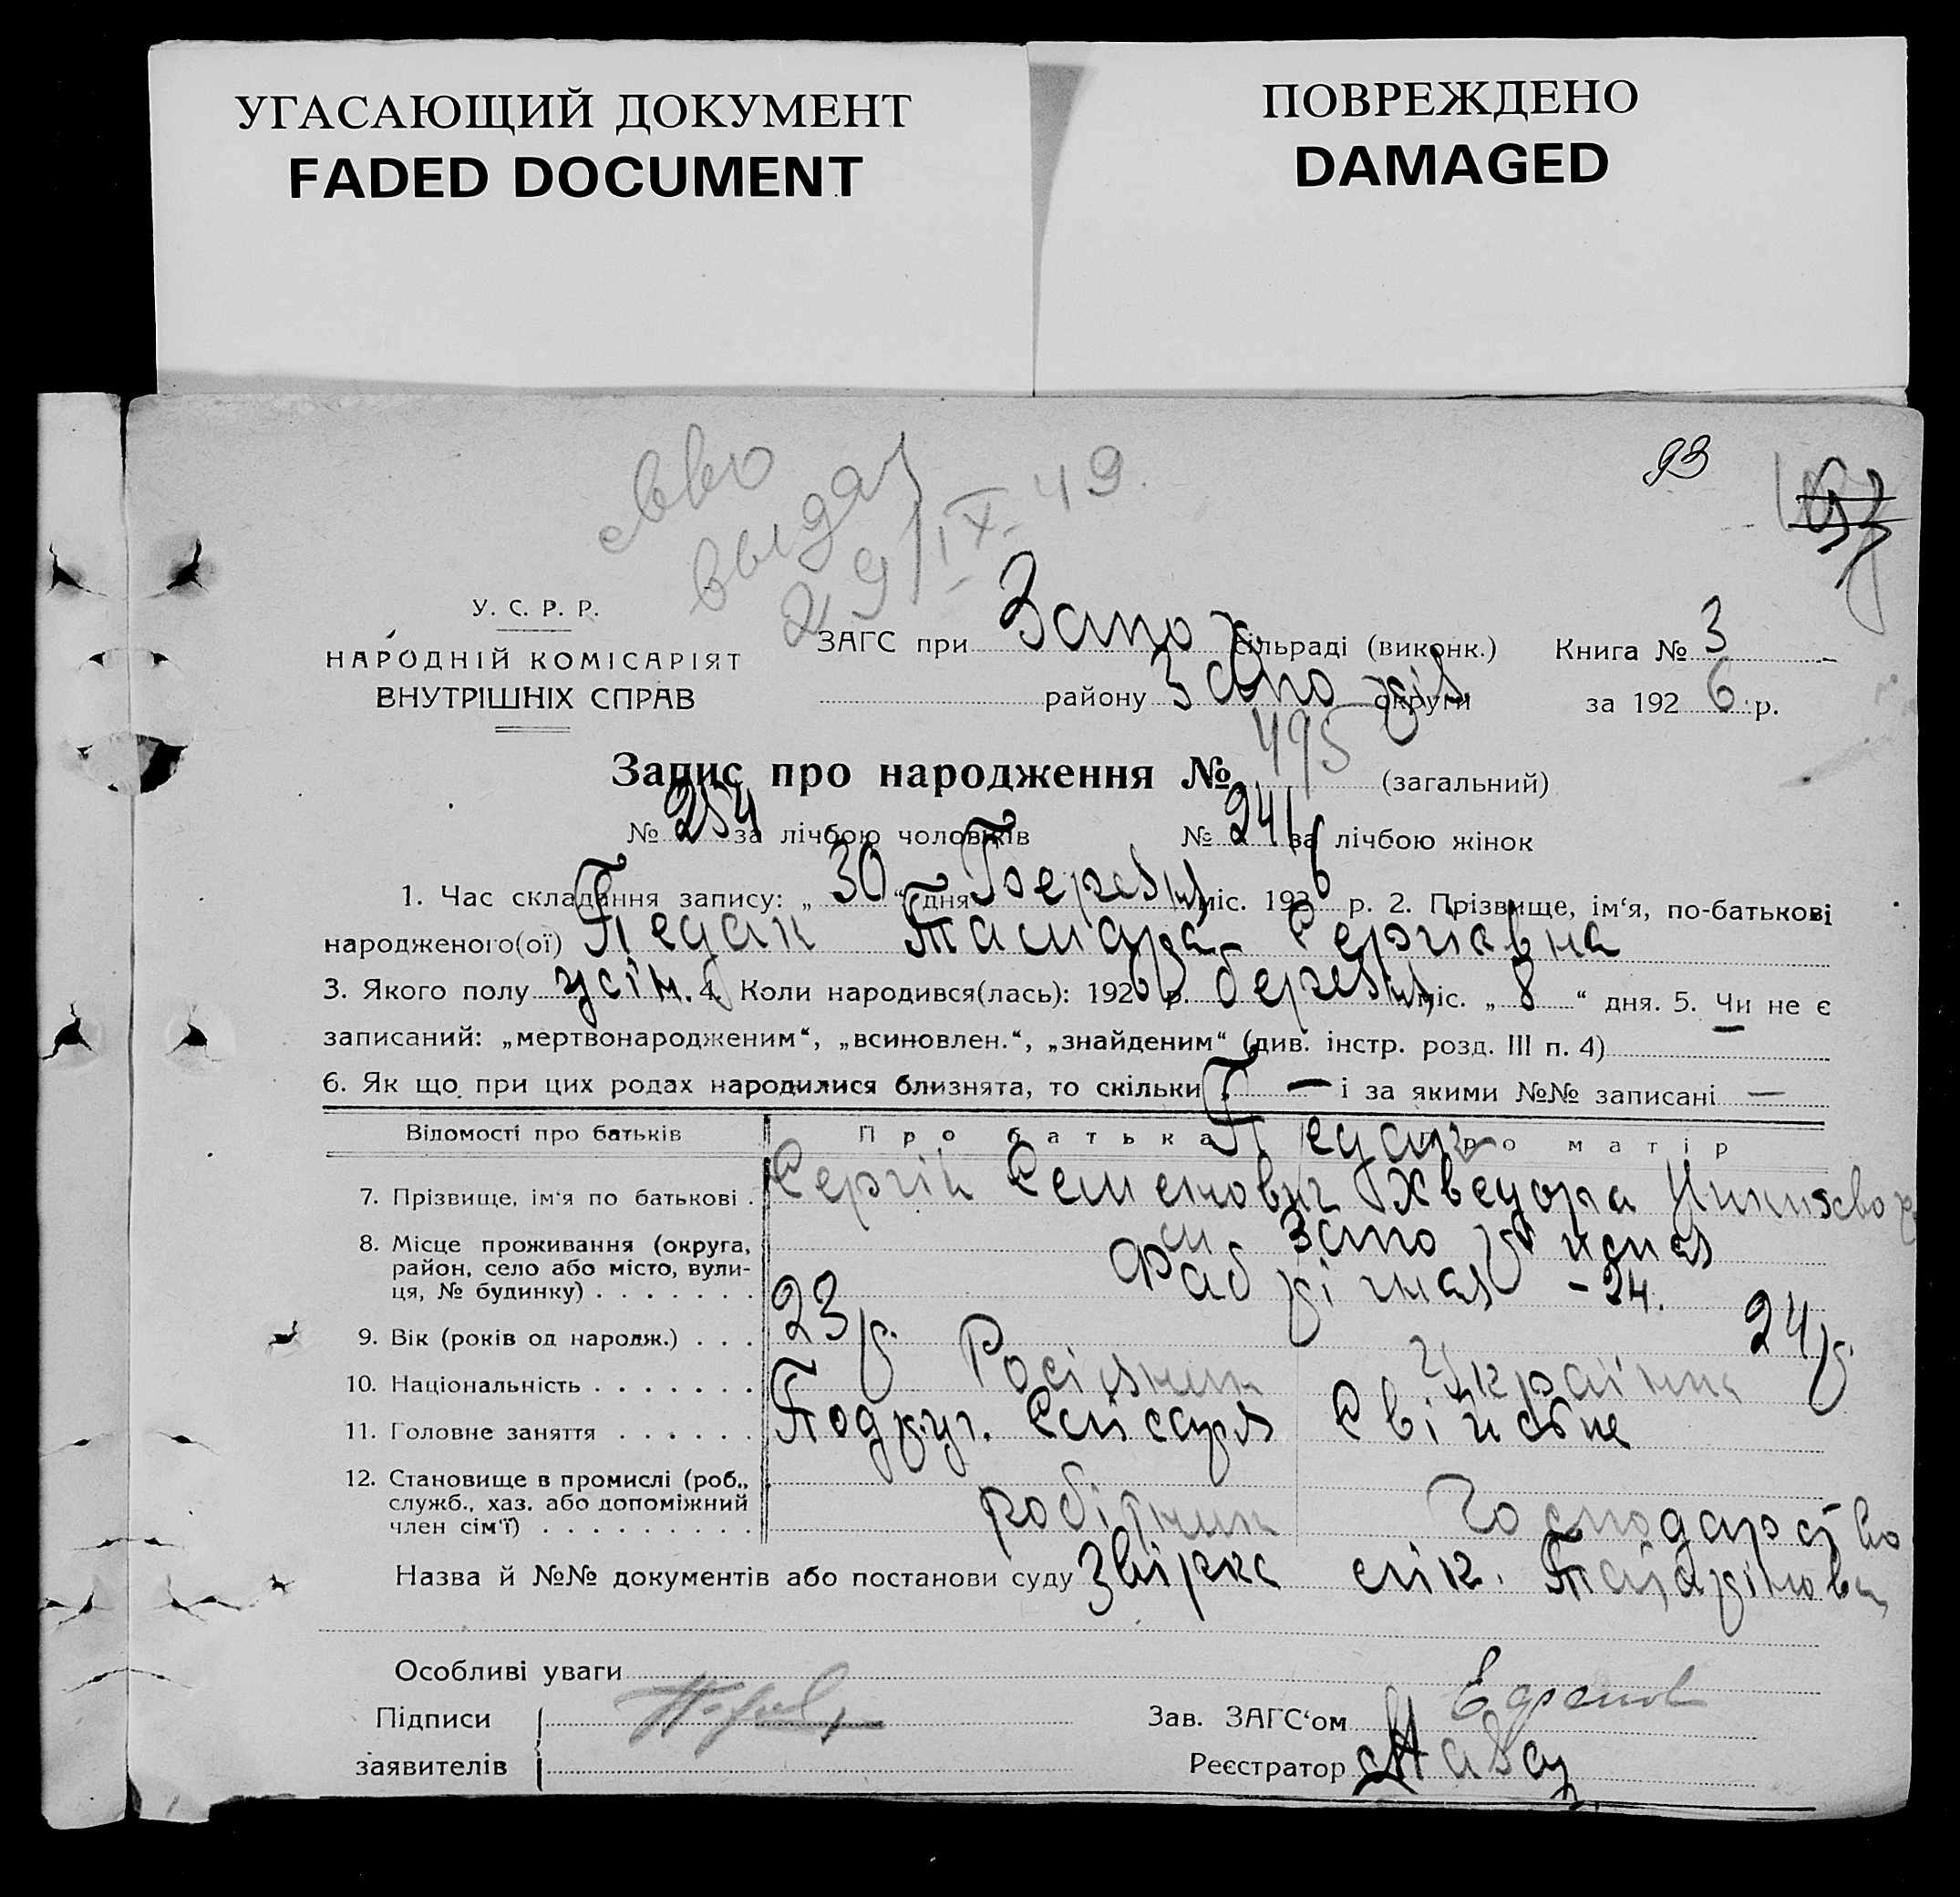 УГАСАЮЩИЙ ДОКУМЕНТ
FADED DOCUMENT
ПОВРЕЖДЕНО
DAMAGED
93
выдан
29/IX-49.
У. С. Р. Р.
НАРОДНІЙ КОМІСАРІЯТ
ВНУТРІШНІХ СПРАВ
ЗАГС при Запор сільраді (виконк.) Книга № 3
району Запоріз округи за 1926 р.
Запис про народження № 495 (загальний)
№ 254 за лічбою чоловіків № 241 за лічбою жінок
1. Час складання запису: „ 30 “ дня Березня міс. 1926 р. 2. Прізвище, ім‘я, по-батькові
народженого(ої) Педак Тамара Сергієвна
3. Якого полу жін. 4. Коли народився(лась): 1926 р. березня міс. „ 8 “ дня. 5. Чи не є
записаний: „мертвонародженим“, „всиновлен.“, „знайденим“ (див. інстр. розд. III п. 4) —
6. Як що при цих родах народилися близнята, то скільки — і за якими №№ записані —
Відомості про батьків Про батька Про матір
Педак
7. Прізвище, ім‘я по батькові . Сергій Семенович Хведора
8. Місце проживання (округа,
район, село або місто, вули-
ця, № будинку) . . . . . . . Фабрічная - 24.
9. Вік (років од народж.) . . . 23 р. 24 р.
10. Національність . . . . . . . Росіянин Українка
11. Головне заняття . . . . . . Подруч. Слісаря Свійське
12. Становище в промислі (роб.,
служб., хаз. або допоміжний
член сім‘ї) . . . . . . . . . робітник Господарство
Назва й №№ документів або постанови суду Звірка лік.
Особливі уваги
Підписи
заявителів
Зав. ЗАГС‘ом
Реєстратор